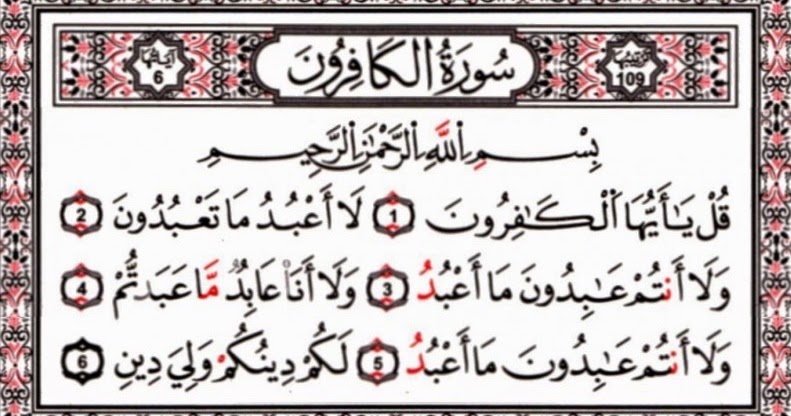 ترتيبها 109
سُورَةُ الكَافِرُونَ
آياتها 6
بِسْمِ اللَّهِ الرَّحْمَٰنِ الرَّحِيمِ
قُلْ يَا أَيُّهَا الْكَافِرُونَ 1 لَا أَعْبُدُ مَا تَعْبُدُونَ 2
وَلَا أَنتُمْ عَابِدُونَ مَا أَعْبُدُ 3 وَلَا أَنَا عَابِدٌ مَّا عَبَدتُّمْ 4
وَلَا أَنتُمْ عَابِدُونَ مَا أَعْبُدُ 5 لَكُمْ دِينُكُمْ وَلِيَ دِينِ 6